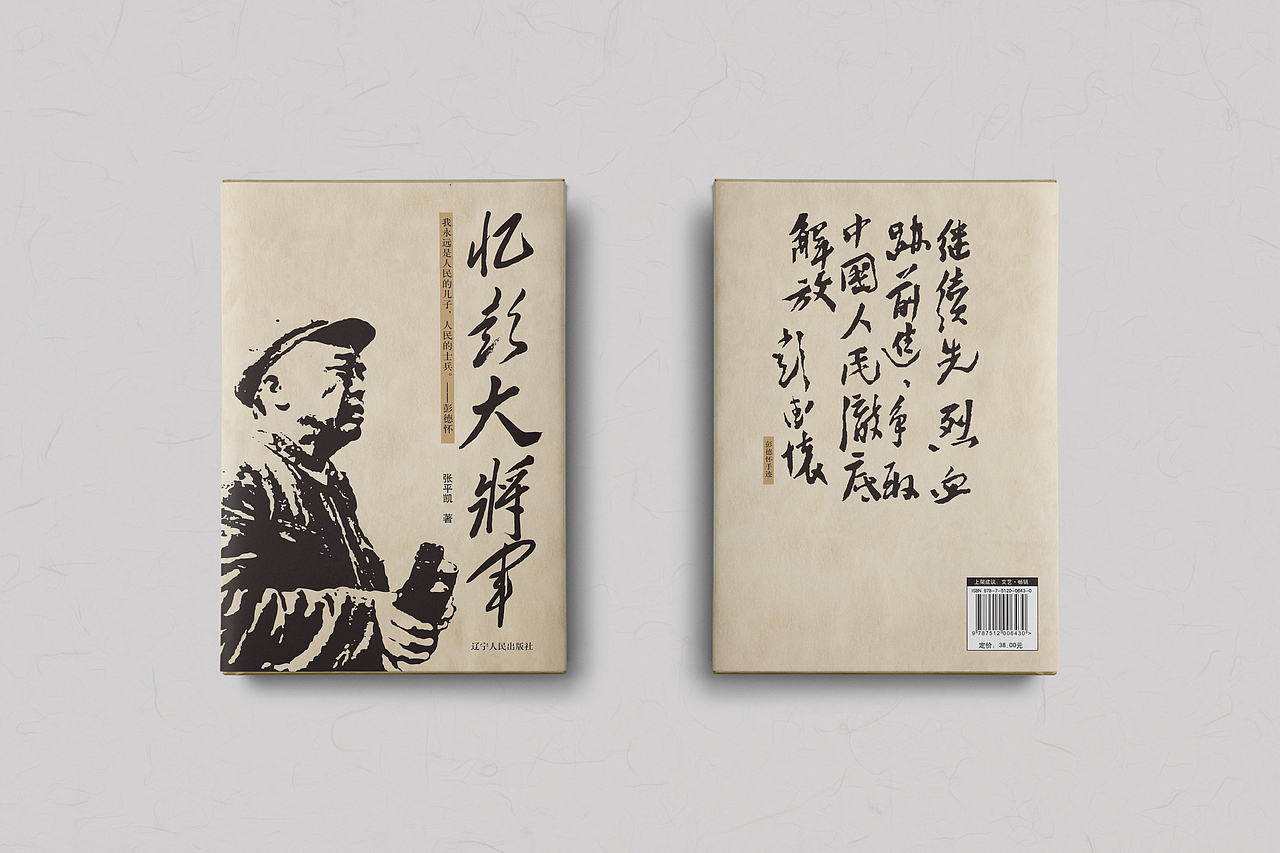 忆彭大将军
我永远是人民的儿子，人民的士兵。——彭德怀
张平凯 著
辽宁人民出版社
继续先烈血
跡前进、争取
中國人民澈底
解放 彭德懷
彭德怀手迹
上架建议：文艺·畅销
ISBN 978-7-5120-0643-0
9 787512 006430 >
定价：38.00元